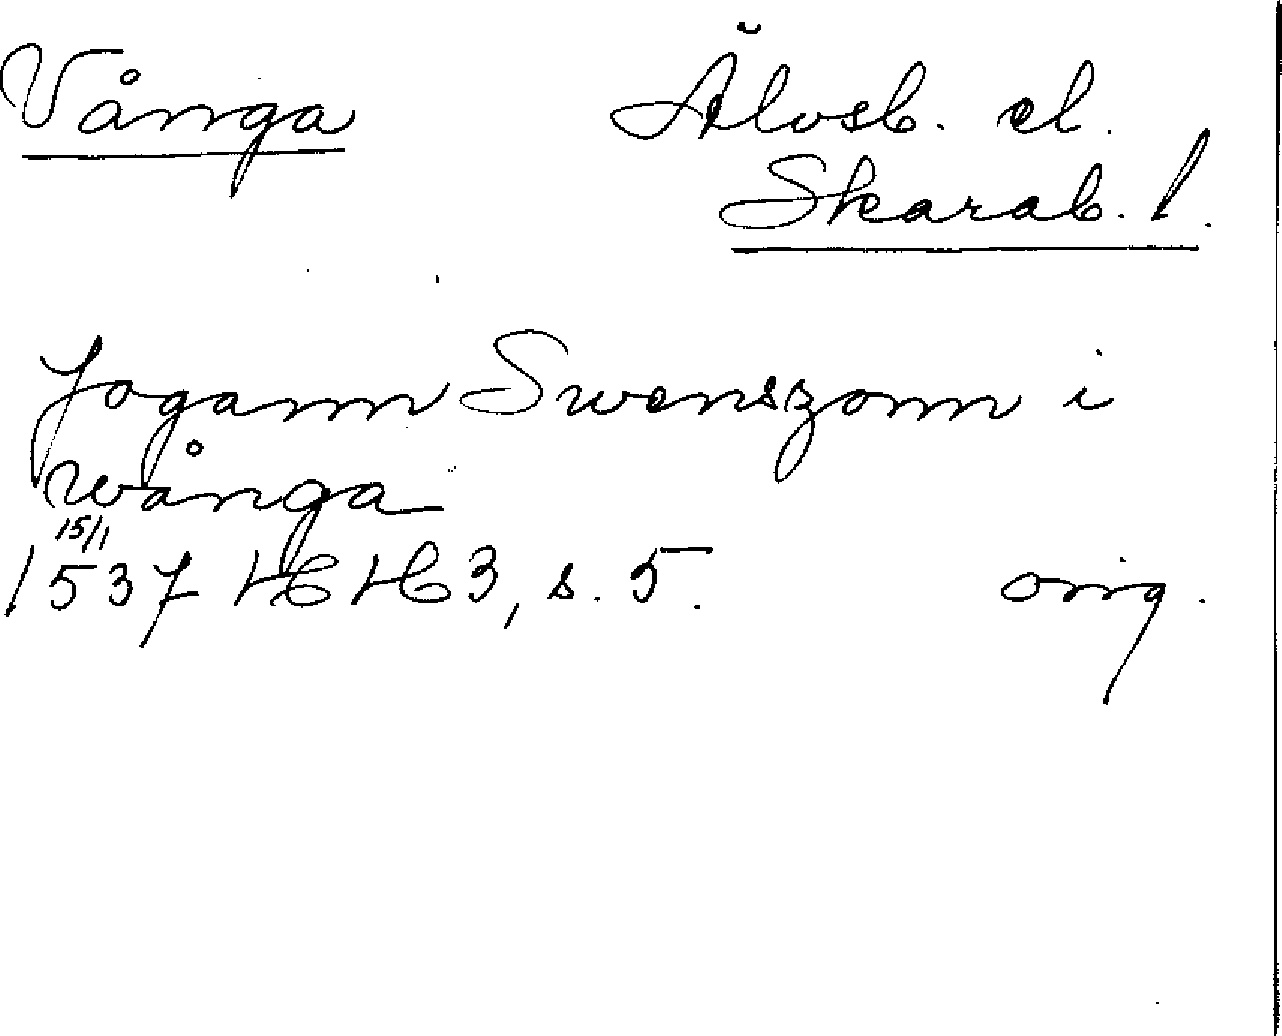 Vånga Älvsb. el.
Skarab. l.
Jogann Swenszonn i
wånga
15/1
1537 HH 3, s. 5. orig.